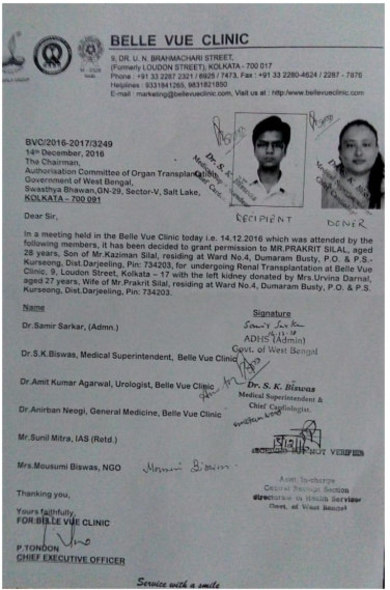 BELLE VUE CLINIC
9, DR. U. N. BRAHMACHARI STREET,
(Formerly LOUDON STREET), KOLKATA - 700 017
Phone : +91 33 2287 2321 / 6925 / 7473, Fax : +91 33 2280-4624 / 2287 - 7876
Helplines : 9331841265, 9831821850
E-mail : marketing@bellevueclinic.com, Visit us at : http://www.bellevueclinic.com
BVC/2016-2017/3249
14th December, 2016
The Chairman,
Authorisation Committee of Organ Transplantation
Government of West Bengal,
Swasthya Bhawan,GN-29, Sector-V, Salt Lake,
KOLKATA – 700 091
Dr. S. K. Biswas
RECIPIENT
DONER
Dear Sir,
In a meeting held in the Belle Vue Clinic today i.e. 14.12.2016 which was attended by the
following members, it has been decided to grant permission to MR.PRAKRIT SILAL, aged
28 years, Son of Mr.Kaziman Silal, residing at Ward No.4, Dumaram Busty, P.O. & P.S.-
Kurseong, Dist.Darjeeling, Pin: 734203, for undergoing Renal Transplantation at Belle Vue
Clinic, 9, Loudon Street, Kolkata – 17 with the left kidney donated by Mrs.Urvina Darnal,
aged 27 years, Wife of Mr.Prakrit Silal, residing at Ward No.4, Dumaram Busty, P.O. & P.S.
Kurseong, Dist.Darjeeling, Pin: 734203.
Name
Signature
Dr.Samir Sarkar, (Admn.)
Samir Sarkar
ADHS (Admin)
Govt. of West Bengal
Dr.S.K.Biswas, Medical Superintendent, Belle Vue Clinic
Dr.Amit Kumar Agarwal, Urologist, Belle Vue Clinic
Dr. S. K. Biswas
Medical Superintendent &
Chief Cardiologist.
Dr.Anirban Neogi, General Medicine, Belle Vue Clinic
Mr.Sunil Mitra, IAS (Retd.)
NOT VERIFIED
Mrs.Mousumi Biswas, NGO
Mousumi Biswas
Thanking you,
Asst. In-charge
Section
Govt. of West Bengal
Yours faithfully,
FOR:BELLE VUE CLINIC
P.TONDON
CHIEF EXECUTIVE OFFICER
Service with a smile